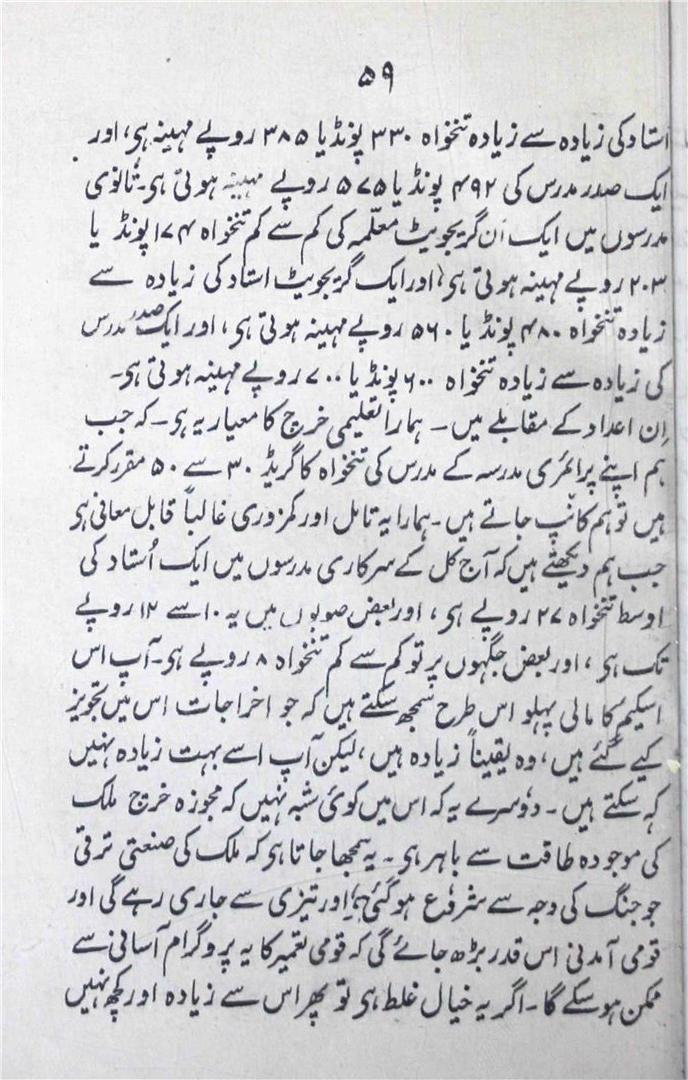 ۵۹
استاد کی زیادہ سے زیادہ تنخواہ ۳۳۰ پونڈ یا ۳۸۵ روپے مہینہ ہی، اور
ایک صدر مدرس کی ۴۹۲ پونڈ یا ۵۷۵ روپے مہینہ ہوتی ہی۔ ثانوی
مدرسوں میں ایک اَن گریجویٹ معلّمہ کی کم سے کم تنخواہ ۱۷۴ پونڈ یا
۲۰۳ روپے مہینہ ہوتی ہی، اور ایک گریجویٹ استاد کی زیادہ سے
زیادہ تنخواہ ۴۸۰ پونڈ یا ۵۶۰ روپے مہینہ ہوتی ہی، اور ایک صدر مدرس
کی زیادہ سے زیادہ تنخواہ ۶۰۰ پونڈ یا ۷۰۰ روپے مہینہ ہوتی ہی۔
اِن اعداد کے مقابلے میں۔ ہمارا تعلیمی خرچ کا معیار یہ ہی۔ کہ جب
ہم اپنے پرائمری مدرسہ کے مدرس کی تنخواہ کا گریڈ ۳۰ سے ۵۰ مقرر کرتے
ہیں تو ہم کانپ جاتے ہیں۔ ہمارا یہ تامل اور کمزوری غالباً قابل معافی ہی
جب ہم دیکھتے ہیں کہ آج کل کے سرکاری مدرسوں میں ایک اُستاد کی
اوسط تنخواہ ۲۷ روپے ہی، اور بعض صوبوں میں یہ ۱۰ سے ۱۲ روپے
تک ہی، اور بعض جگہوں پر تو کم سے کم تنخواہ ۸ روپے ہی۔ آپ اس
اسکیم کا مالی پہلو اس طرح سمجھ سکتے ہیں کہ جو اخراجات اس میں تجویز
کیے گئے ہیں، وہ یقیناً زیادہ ہیں، لیکن آپ اسے بہت زیادہ نہیں
کہ سکتے ہیں۔ دوسرے یہ کہ اس میں کوئی شبہ نہیں کہ مجوزہ خرچ ملک
کی موجودہ طاقت سے باہر ہی۔ یہ سمجھا جاتا ہی کہ ملک کی صنعتی ترقی
جو جنگ کی وجہ سے شروع ہو گئی ہی اور تیزی سے جاری رہے گی اور
قومی آمدنی اس قدر بڑھ جائے گی کہ قومی تعمیر کا یہ پروگرام آسانی سے
ممکن ہو سکے گا۔ اگر یہ خیال غلط ہی تو پھر اس سے زیادہ اور کچھ نہیں